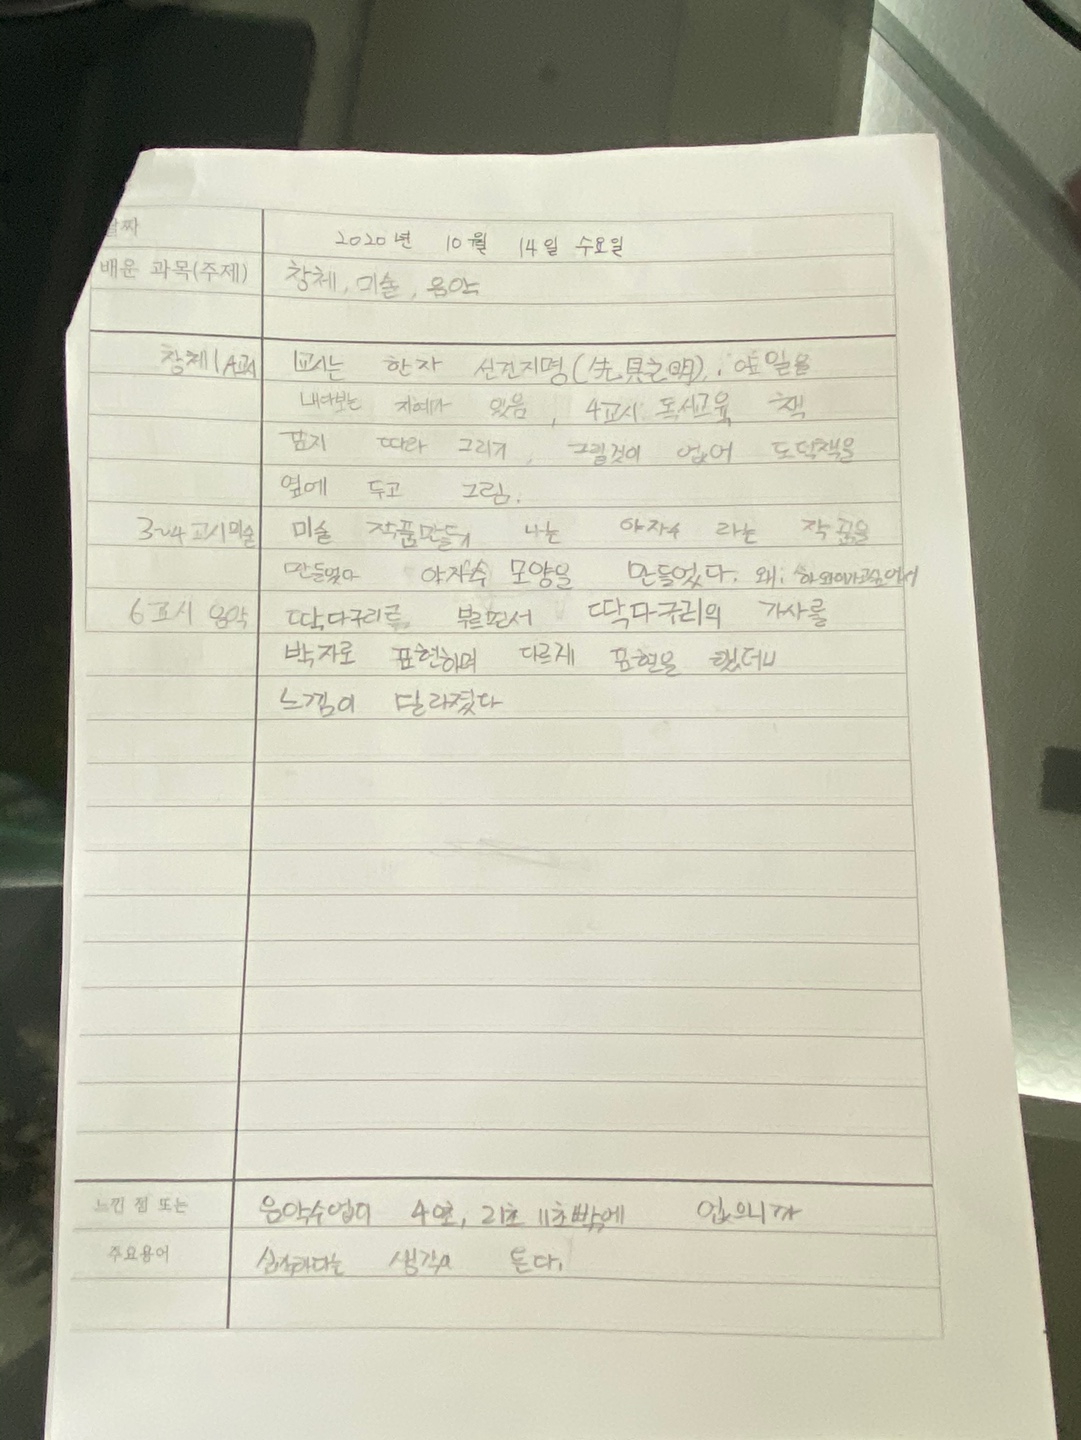 날짜 2020년 10월 14일 수요일
배운 과목(주제) 창체, 미술, 음악
창체 1교시는 한자 선견지명(先見之明),
내다보는 지혜가 있음, 4교시 독서교육 책
표지 따라 그리기, 그릴것이 없어 도덕책을
옆에 두고 그림.
3~4교시미술 미술 작품만들기 나는 야자수 라는 작품을
만들었다 야자수 모양을 만들었다. 왜: 하와이가고싶어서
6교시 음악 딱다구리를 부르면서 딱다구리의 가사를
박자로 표현하며 다르게 표현을 했더니
느낌이 달라졌다
느낀 점 또는 음악수업이 4번, 21초 11초빡에 없으니까
주요용어 생각이 든다.